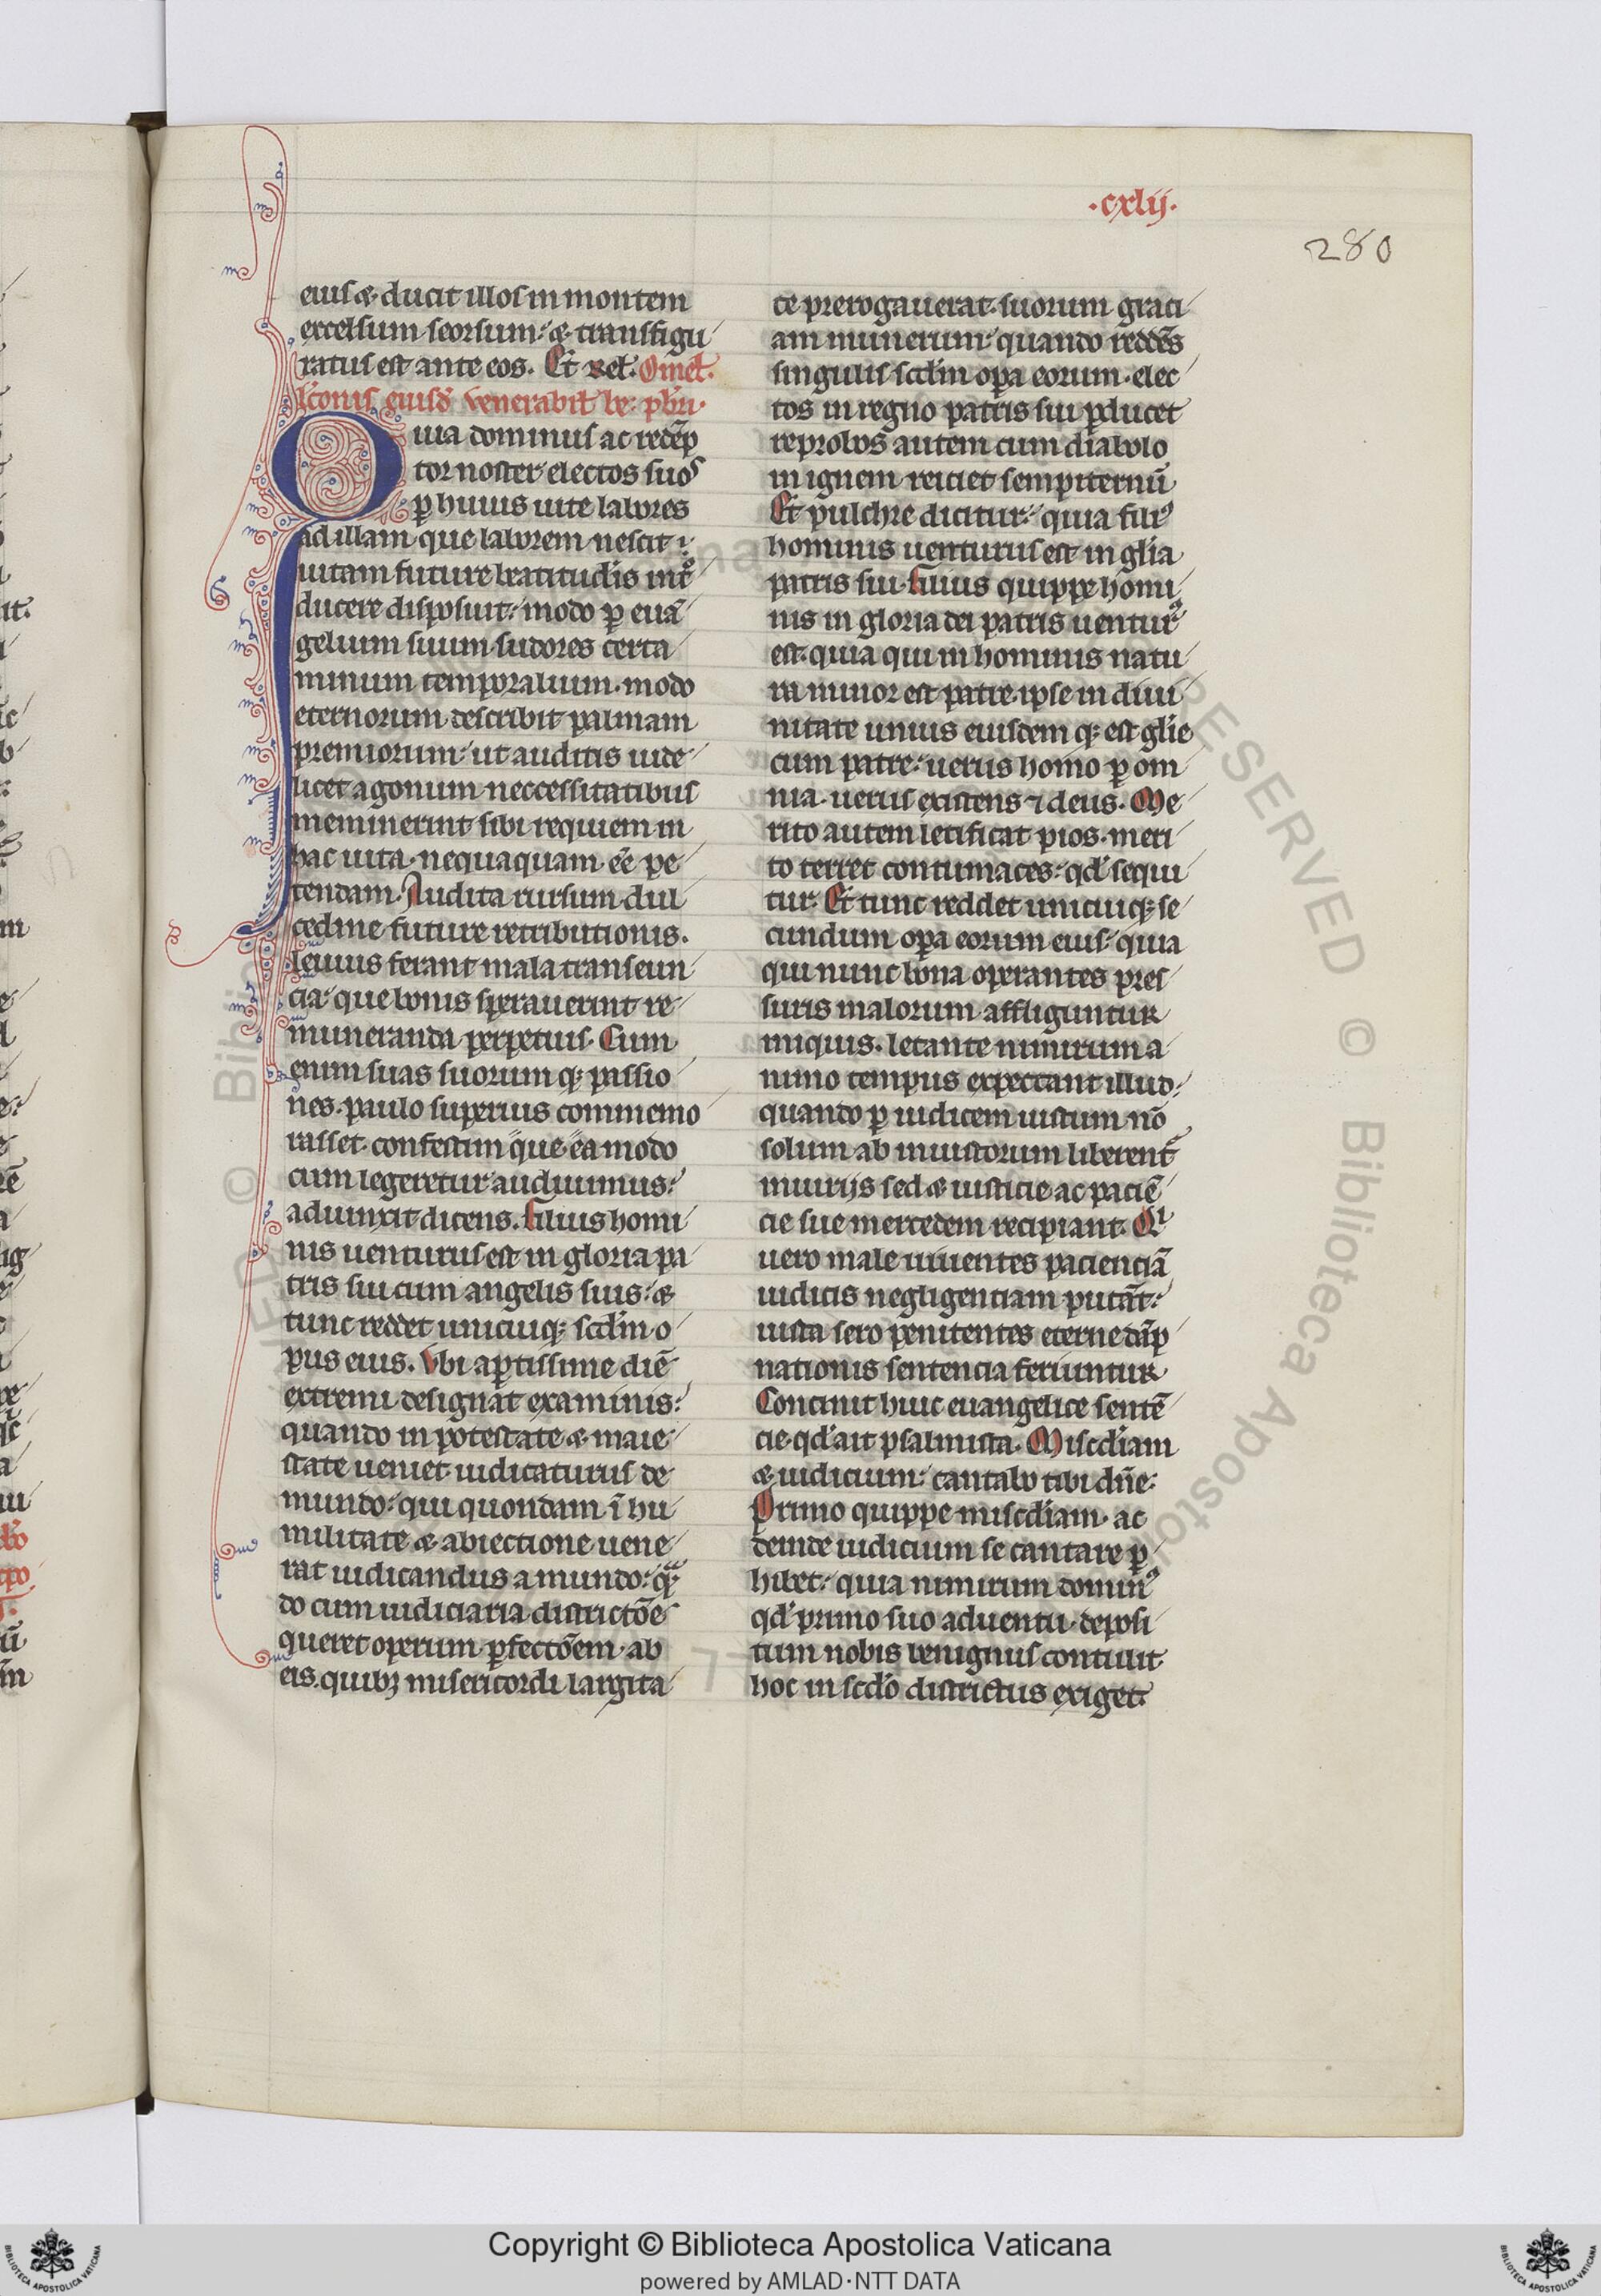 ·cxlij·
280
eius & ducit illos in montem
excelsum seorsum: & transfigu
ratus est ante eos. Et rel̃. Omel̃.
lc̃onis eiusd̃ venerabil̃ be. pb̃ri.
Quia dominus ac redẽp
tor noster electos suos
ꝑ huius uite labores
ad illam que laborem nescit:
uitam future beatitudĩs int̊
ducere disposuit: modo ꝑ euã
gelium suum sudores certa
minum temporalium. modo
eternorum describit palmam
premiorum: ut auditis uide
licet agonum neccessitatibus
meminerint sibi requiem in
hac uita nequaquam eẽ pe
tendam. Audita rursum dul
cedine future retributionis.
leuius ferant mala transeun
cia: que bonis sperauerint re
muneranda perpetuis. Cum
enim suas suorum qꝫ passio
nes. paulo superius commemo
rasset confestim que ea modo
cum legeretur audiuimus:
adiunxit dicens. Filius homi
nis uenturus est in gloria pa
tris sui cum angelis suis: &
tunc reddet unicuiqꝫ scd̃m o
pus eius. Vbi aꝑtissime diẽ
extremi designat examinis:
quando in potestate & maie
state ueniet iudicaturus de
mundo: qui quondam ĩ hu
militate & abiectione uene
rat iudicandus a mundo: qͣn
do cum iudiciaria districtõe
queret operum ꝑfectõem ab
eis. quibꝫ misericordi largita
te prerogauerat suorum graci
am munerum: quando redde̅s
singulis scd̃m oꝑa eorum. elec
tos in regno patris sui ꝓducet
reprobos autem cum diabolo
in ignem reiciet sempiternũ
Et pulchre dicitur: quia filiꝰ
hominis uenturus est in gl̃ia
patris sui. Filius quippe homi
nis in gloria dei patris uenturꝰ
est. quia qui in hominis natu
ra minor est patre. ipse in diui
nitate unius eiusdem qꝫ est gl̃ie
cum patre: uerus homo ꝑ om
nia. uerus existens ⁊ deus. Me
rito autem letificat pios. meri
to terret contumaces: qd̃ sequi
tur. Et tunc reddet unicuiqꝫ se
cundum oꝑa eorum eius: quia
qui nunc bona operantes pres
suris malorum affliguntur
iniquis. letante nimirum a
nimo tempus expectant illud:
quando ꝑ iudicem iustum nõ
solum ab iniustorum liberent̃
iniurijs sed & iusticie ac paciẽ
cie sue mercedem recipiant. Qi
uero male uiuentes pacienciã
iudicis negligenciam putãt:
iusta sero penitentes eterne dãp
nationis sentencia feriuntur
Concinit huic euangelice sentẽ
cie. qd̃ ait psalmista. Miscd̃iam
& iudicium: cantabo tibi dñe:
Primo quippe miscd̃iam. ac
deinde iudicium se cantare ꝑ
hibet: quia nimirum dominꝰ
qd̃ primo suo aduentu. deposi
tum nobis benignus contulit
hoc in scd̃o districtus exiget.
Copyright © Biblioteca Apostolica Vaticana
powered by AMLAD·NTT DATA